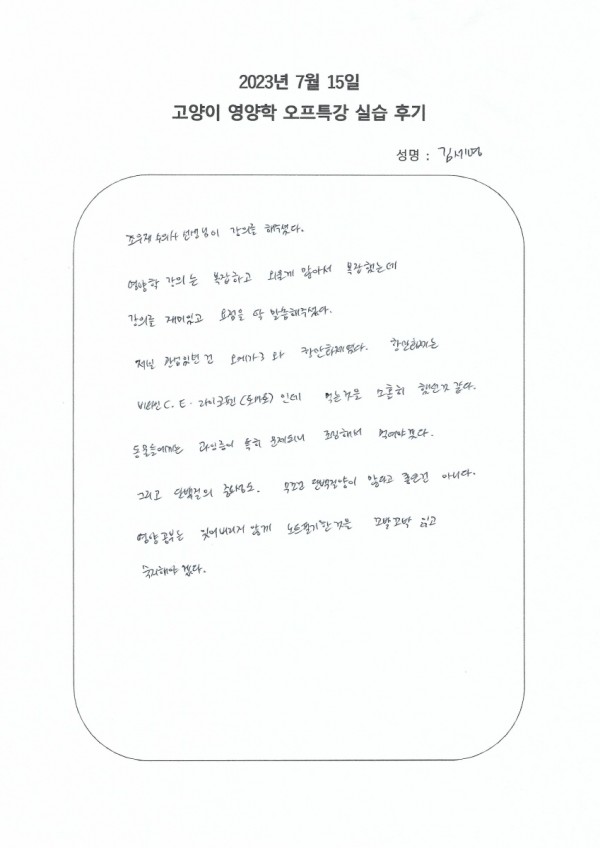 2023년 7월 15일
고양이 영양학 오프특강 실습 후기
성명 : 김세명
조우재 수의사 선생님이 강의를 해주셨다.
영양학 강의는 복잡하고 외울게 많아서 복잡했는데
강의를 재미있고 요점을 딱 말씀해주셨다.
제일 관심있던건 오메가3 와 항산화제였다. 항산화제는
비타민 C. E. 라이코펜 (토마토) 인데 먹는것을 소홀히 했던것 같다.
동물들에게는 과잉증이 특히 문제되니 조심해서 먹여야겠다.
그리고 단백질의 중요성도. 무조건 단백질양이 많다고 좋은건 아니다.
영양공부는 잊어버리지 않게 노트필기한것을 꼬박꼬박 읽고
숙지해야 겠다.